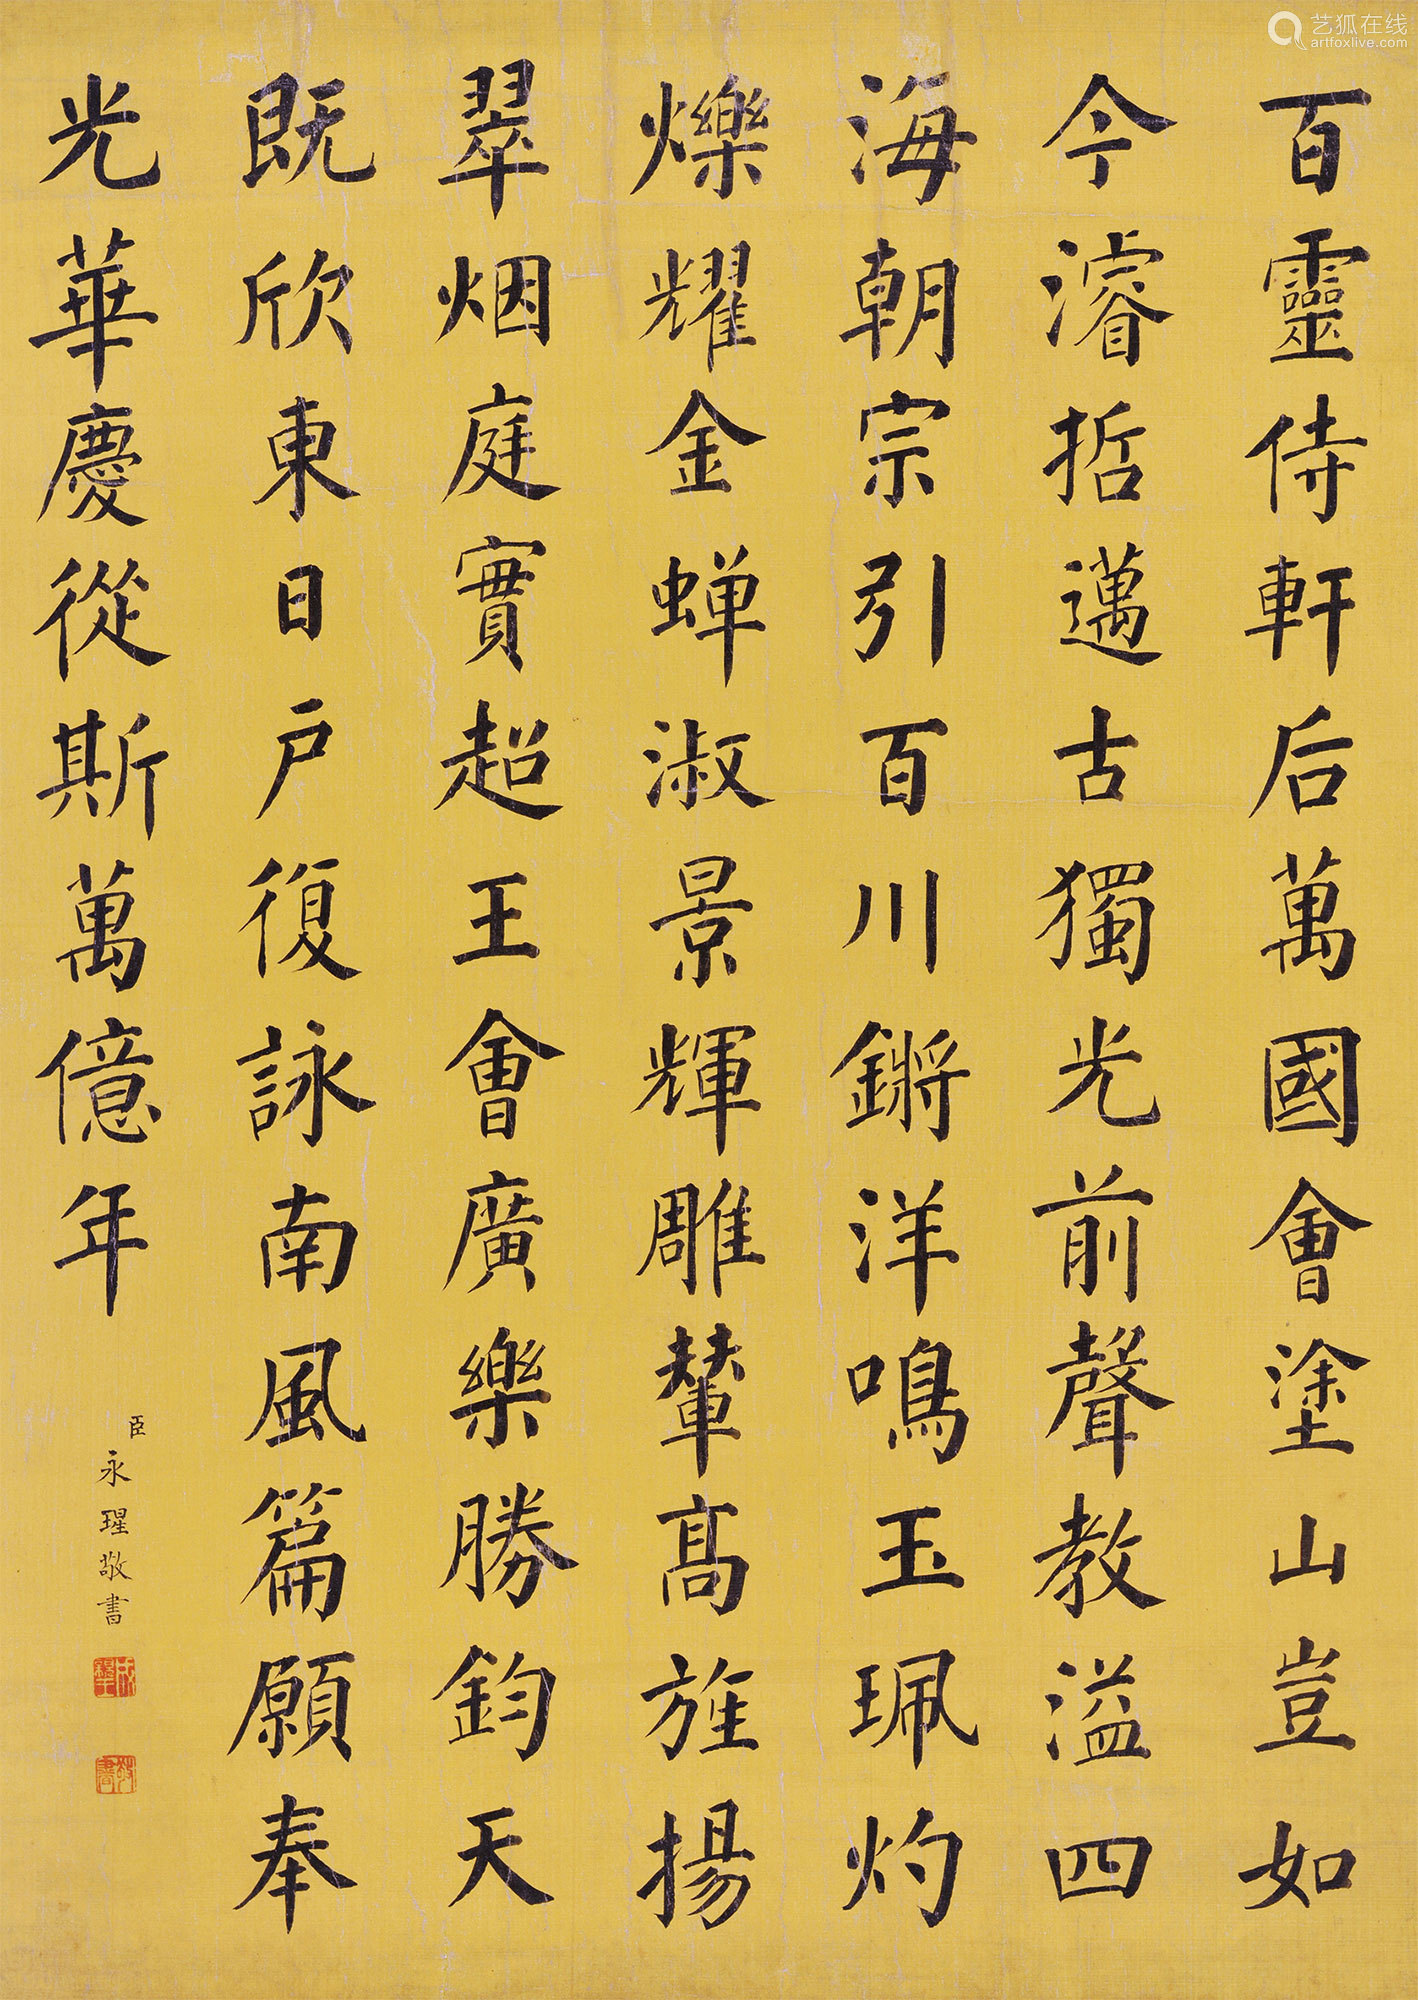 百靈侍軒后萬國會塗山豈如
今濬哲邁古獨光前聲教溢四
海朝宗引百川鏘洋鳴玉珮灼
爍耀金蟬淑景輝雕輦高旌揚
翠烟庭實超王會廣樂勝鈞天
既欣東日戶復詠南風篇願奉
光華慶從斯萬億年
臣永瑆敬書
艺狐在线
artfoxlive.com